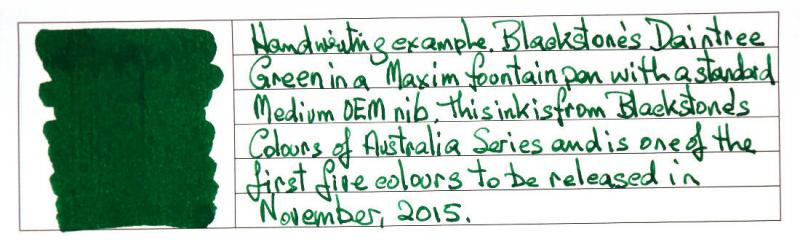 Handwriting example. Blackstone's Daintree
Green in a Maxim fountain pen with a standard
Medium OEM nib. This ink is from Blackstone's
Colours of Australia Series and is one of the
first five colours to be released in
November, 2015.